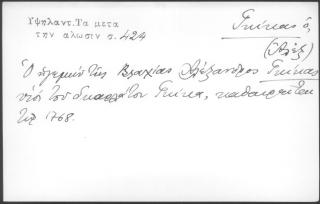 Υψηλαντ. Τα μετα
την αλωσιν σ. 424
Γκίκας ὁ,
(Ἀλέξ)
Ὁ ἡγεμὼν τῆς Βλαχίας Ἀλέξανδρος Γκίκας
υἱὸς τοῦ Γκίκα, καθαιρεῖται
τῷ 1768.